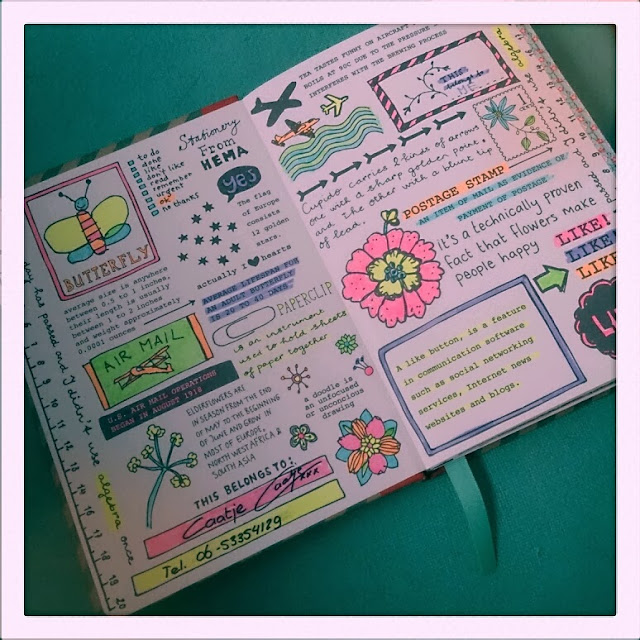 to do
done
like
don't like
read
remember
urgent
ok
no thanks
Stationery
From
HEMA
yes
The flag
of Europe
consists
12 golden
stars.
BUTTERFLY
actually I hearts
average size is anywhere
between 0.5 to 1 inches,
their length is usually
between 1 to 2 inches
and weight approximately
0.0001 ounces
AVERAGE LIFESPAN FOR
AN ADULT BUTTERFLY
IS 20 TO 40 DAYS
PAPERCLIP
is an instrument
used to hold sheets
of paper together
AIR MAIL
U.S. AIR MAIL OPERATIONS
BEGAN IN AUGUST 1918
ELDERFLOWERS ARE
IN SEASON FROM THE END
OF MAY TO THE BEGINNING
OF JUNE AND GROW IN
MOST OF EUROPE,
NORTH WEST AFRICA &
SOUTH ASIA
a doodle is
an unfocused
or unconcious
drawing
THIS BELONGS TO:
Caatje Caatje xxx
Tel. 06-53354129
day has passed and I didn't use algebra once
10 11 12 13 14 15 16 17 18 19 20
TEA TASTES FUNNY ON AIRCRAFT
BOILS AT 90C DUE TO THE PRESSURE
INTERFERES WITH THE BREWING PROCESS
THIS
belongs to
ME
1
Cupido carries 2 kinds of arrows
one with a sharp golden point,
and the other with a blunt tip
of lead.
POSTAGE STAMP
AN ITEM OF MAIL AS EVIDENCE OF
PAYMENT OF POSTAGE
It's a technically proven
fact that flowers make
people happy
LIKE!
LIKE
LIKE
A like button, is a feature
in communication software
such as social networking
services, Internet news
websites and blogs.
algebra
passed and I didn't use